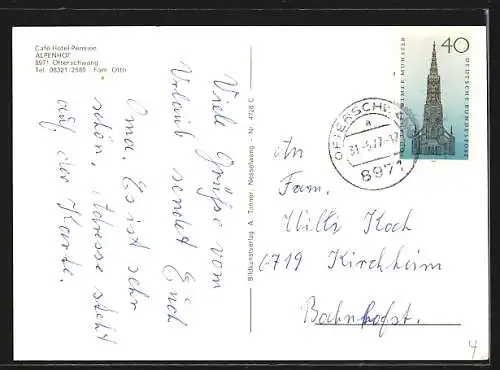 Café-Hotel-Pension
ALPENHOF
8971 Ofterschwang
Tel. 08321/2580 - Fam. Otto
Viele Grüße vom
Urlaub sendet Euch
Oma. Es ist sehr
schön, Adresse steht
auf der Karte.
Bildkunstverlag A. Tanner, Nesselwang - Nr. 4728 C
40
ULMER MÜNSTER
DEUTSCHE BUNDESPOST
OFTERSCHWANG
a
31.-5.77-17
8971
An
Fam.
Koch
6719 Kirchheim
Bahnhofst.
4